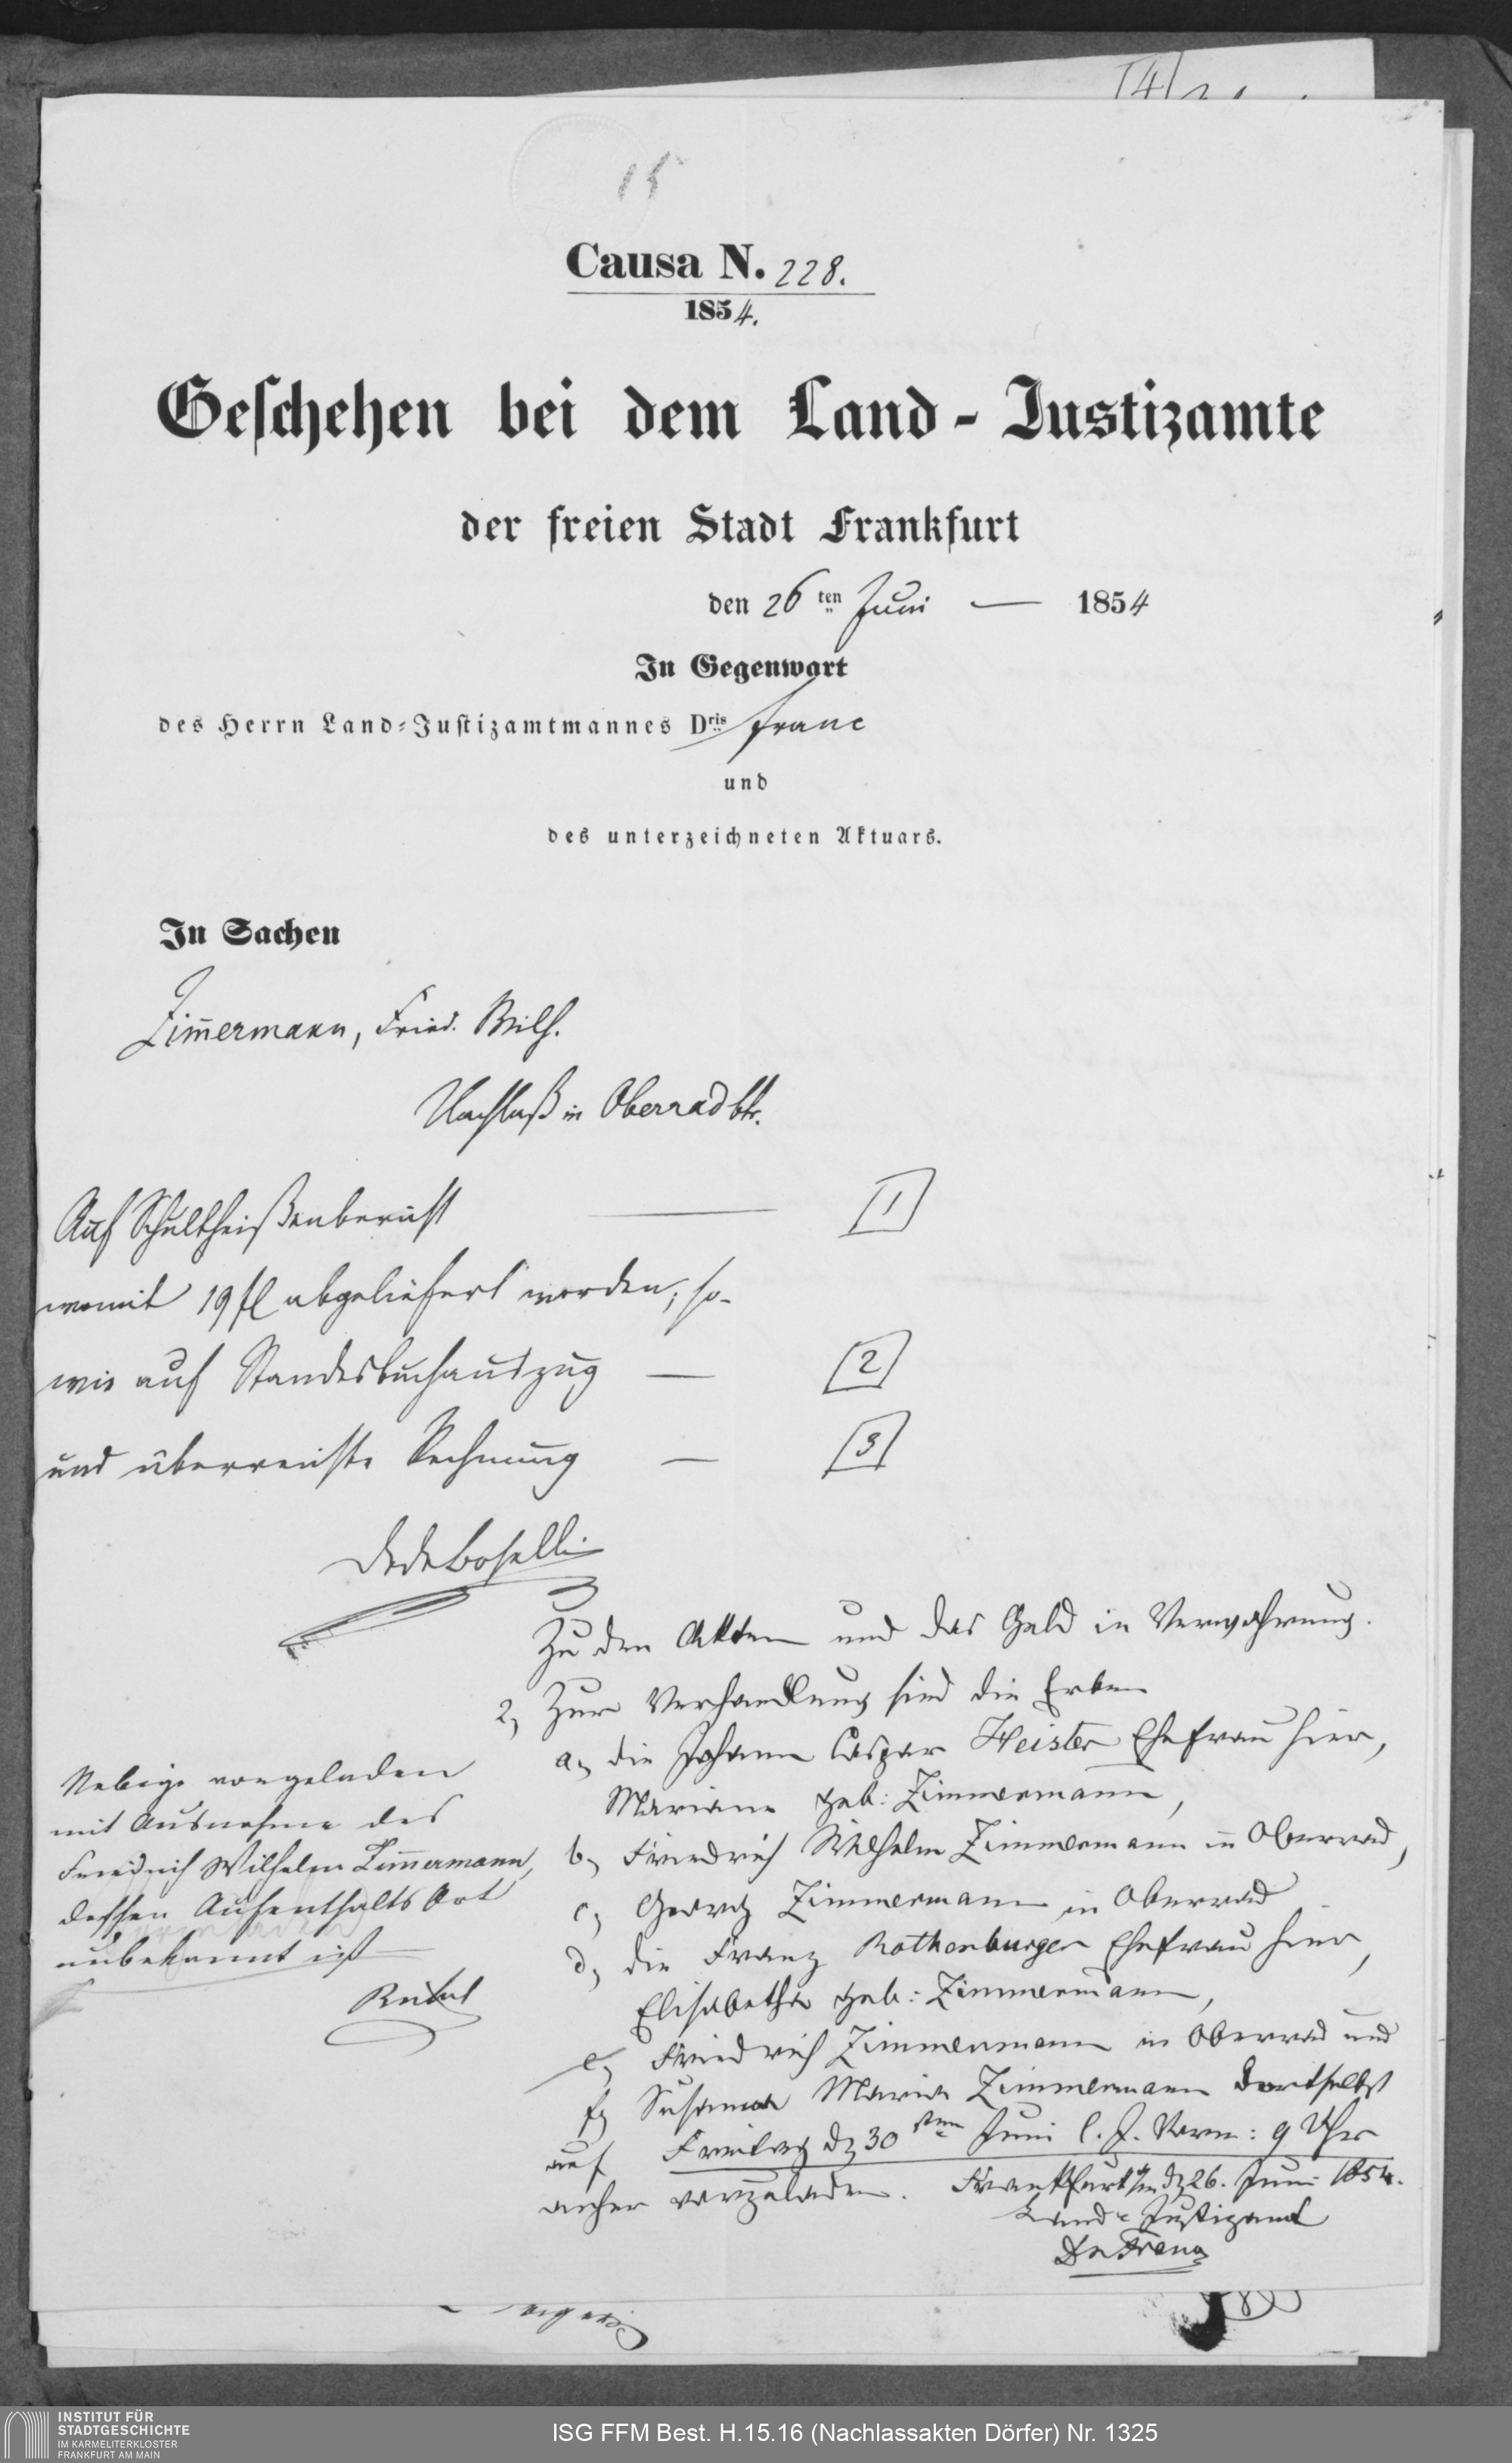 15
Causa N. 228.
1854.
Geschehen bei dem Land-Justizamte
der freien Stadt Frankfurt
den 26ten Juni — 1854
In Gegenwart
des Herrn Land-Justizamtmannes Dris Franc
und
des unterzeichneten Aktuars.
In Sachen
Zim̅ermann, Fried. Wilh.
Nachlaß in Oberrad btr.
Auf Schultheißenbericht — 1
womit 19 fl abgeliefert worden, so-
wie auf Standesbuchauszug — 2
und überreichte Rechnung — 3
Zu den Akten und das Geld in Verwahrung.
2, Zur Verhandlung sind die Erben
a, die Johann Caspar Heister Ehefrau hier,
Mariane geb: Zimmermann,
b, Friedrich Wilhelm Zimmermann in Oberrad,
c, Georg Zimmermann in Oberrad
d, die Franz Rothenburger Ehefrau hier,
Elisabetha geb: Zimmermann,
e, Friedrich Zimmermann in Oberrad und
f, Susanna Maria Zimmermann dortselbst
auf Freitag d. 30sten Juni l. J. Vorm: 9 Uhr
anher vorzuladen. Frankfurt a/m d. 26. Juni 1854.
Land-Justizamt
Dr Franc
Nebige vorgeladen
mit Ausnahme des
Friedrich Wilhelm Zim̅ermann,
dessen Aufenthalts Ort
unbekannt ist
INSTITUT FÜR
STADTGESCHICHTE
IM KARMELITERKLOSTER
FRANKFURT AM MAIN
ISG FFM Best. H.15.16 (Nachlassakten Dörfer) Nr. 1325